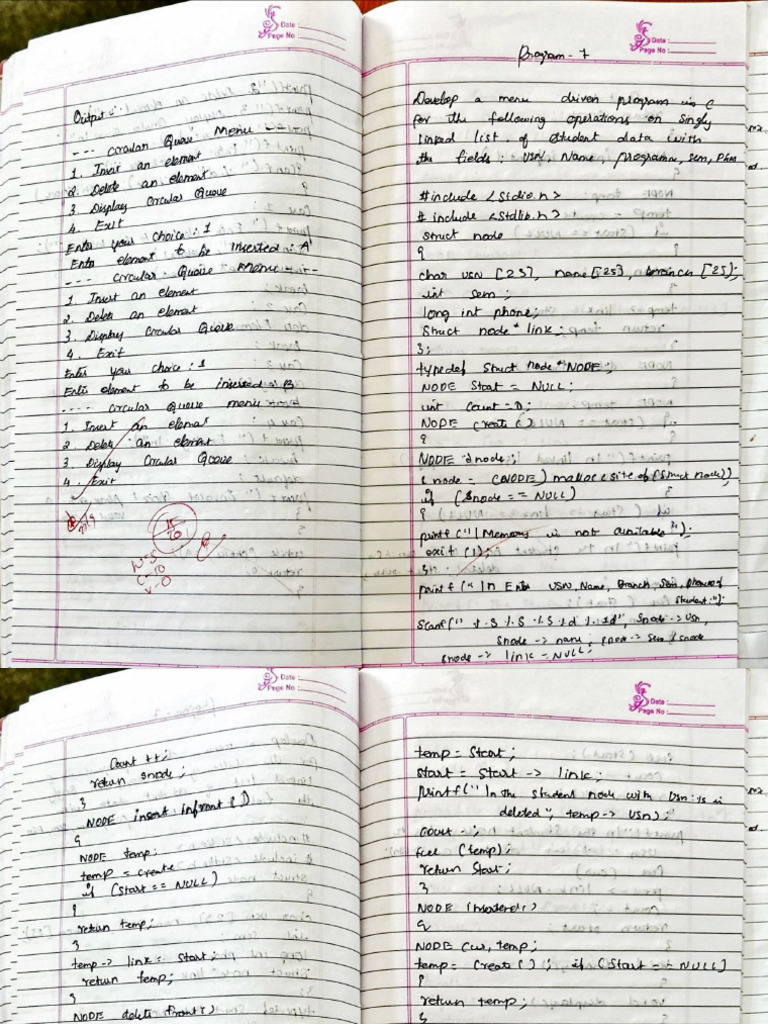 Date :
Page No :
Output :-
--- Circular Queue Menu ---
1. Insert an element
2. Delete an element
3. Display Circular Queue
4. Exit
Enter your choice : 1
Enter element to be inserted : A
---- Circular Queue Menu --
1. Insert an element
2. Delete an element
3. Display Circular Queue
4. Exit
Enter your choice : 1
Enter element to be inserted : B
---- Circular Queue menu
1. Insert an element
2. Delete an element
3. Display Circular Queue
4. Exit
Date :
Page No :
Program - 7
Develop a menu driven program in C
for the following operations on Singly
linked list of student data with
the fields : USN, Name, Programme, Sem, PhNo
#include <Stdio.h>
# include <Stdlib.h>
struct node
{
char USN [25], name[25], branch [25];
int sem ;
long int phone;
Struct node * link;
};
typedef Struct node * NODE;
NODE Start = NULL;
int count = 0;
NODE Create ( )
{
NODE snode;
snode = (NODE) malloc (size of (struct node))
if (Snode == NULL)
{
printf ("\ Memory is not available");
exit (1);
}
printf (" \n Enter USN, Name, Branch, Sem, phone of
Student :");
Scanf (" %S %S %S %d %ld", Snode -> Usn,
Snode -> name,
snode -> link = NULL;
Date :
Page No :
Count ++;
return snode ;
}
NODE insert infront ( )
{
NODE temp;
temp = create
if (Start == NULL)
{
return temp;
}
temp -> link = Start;
return temp;
}
NODE delete front ( )
Date :
Page No :
temp = Start ;
start = Start -> link;
printf (" \n the Student node with Usn : %s is
deleted", temp -> USN);
count - ;
free (temp);
return Start;
}
NODE
{
NODE Cur, temp;
temp = Create ( ) ; if (Start == NULL]
{
return temp;
}